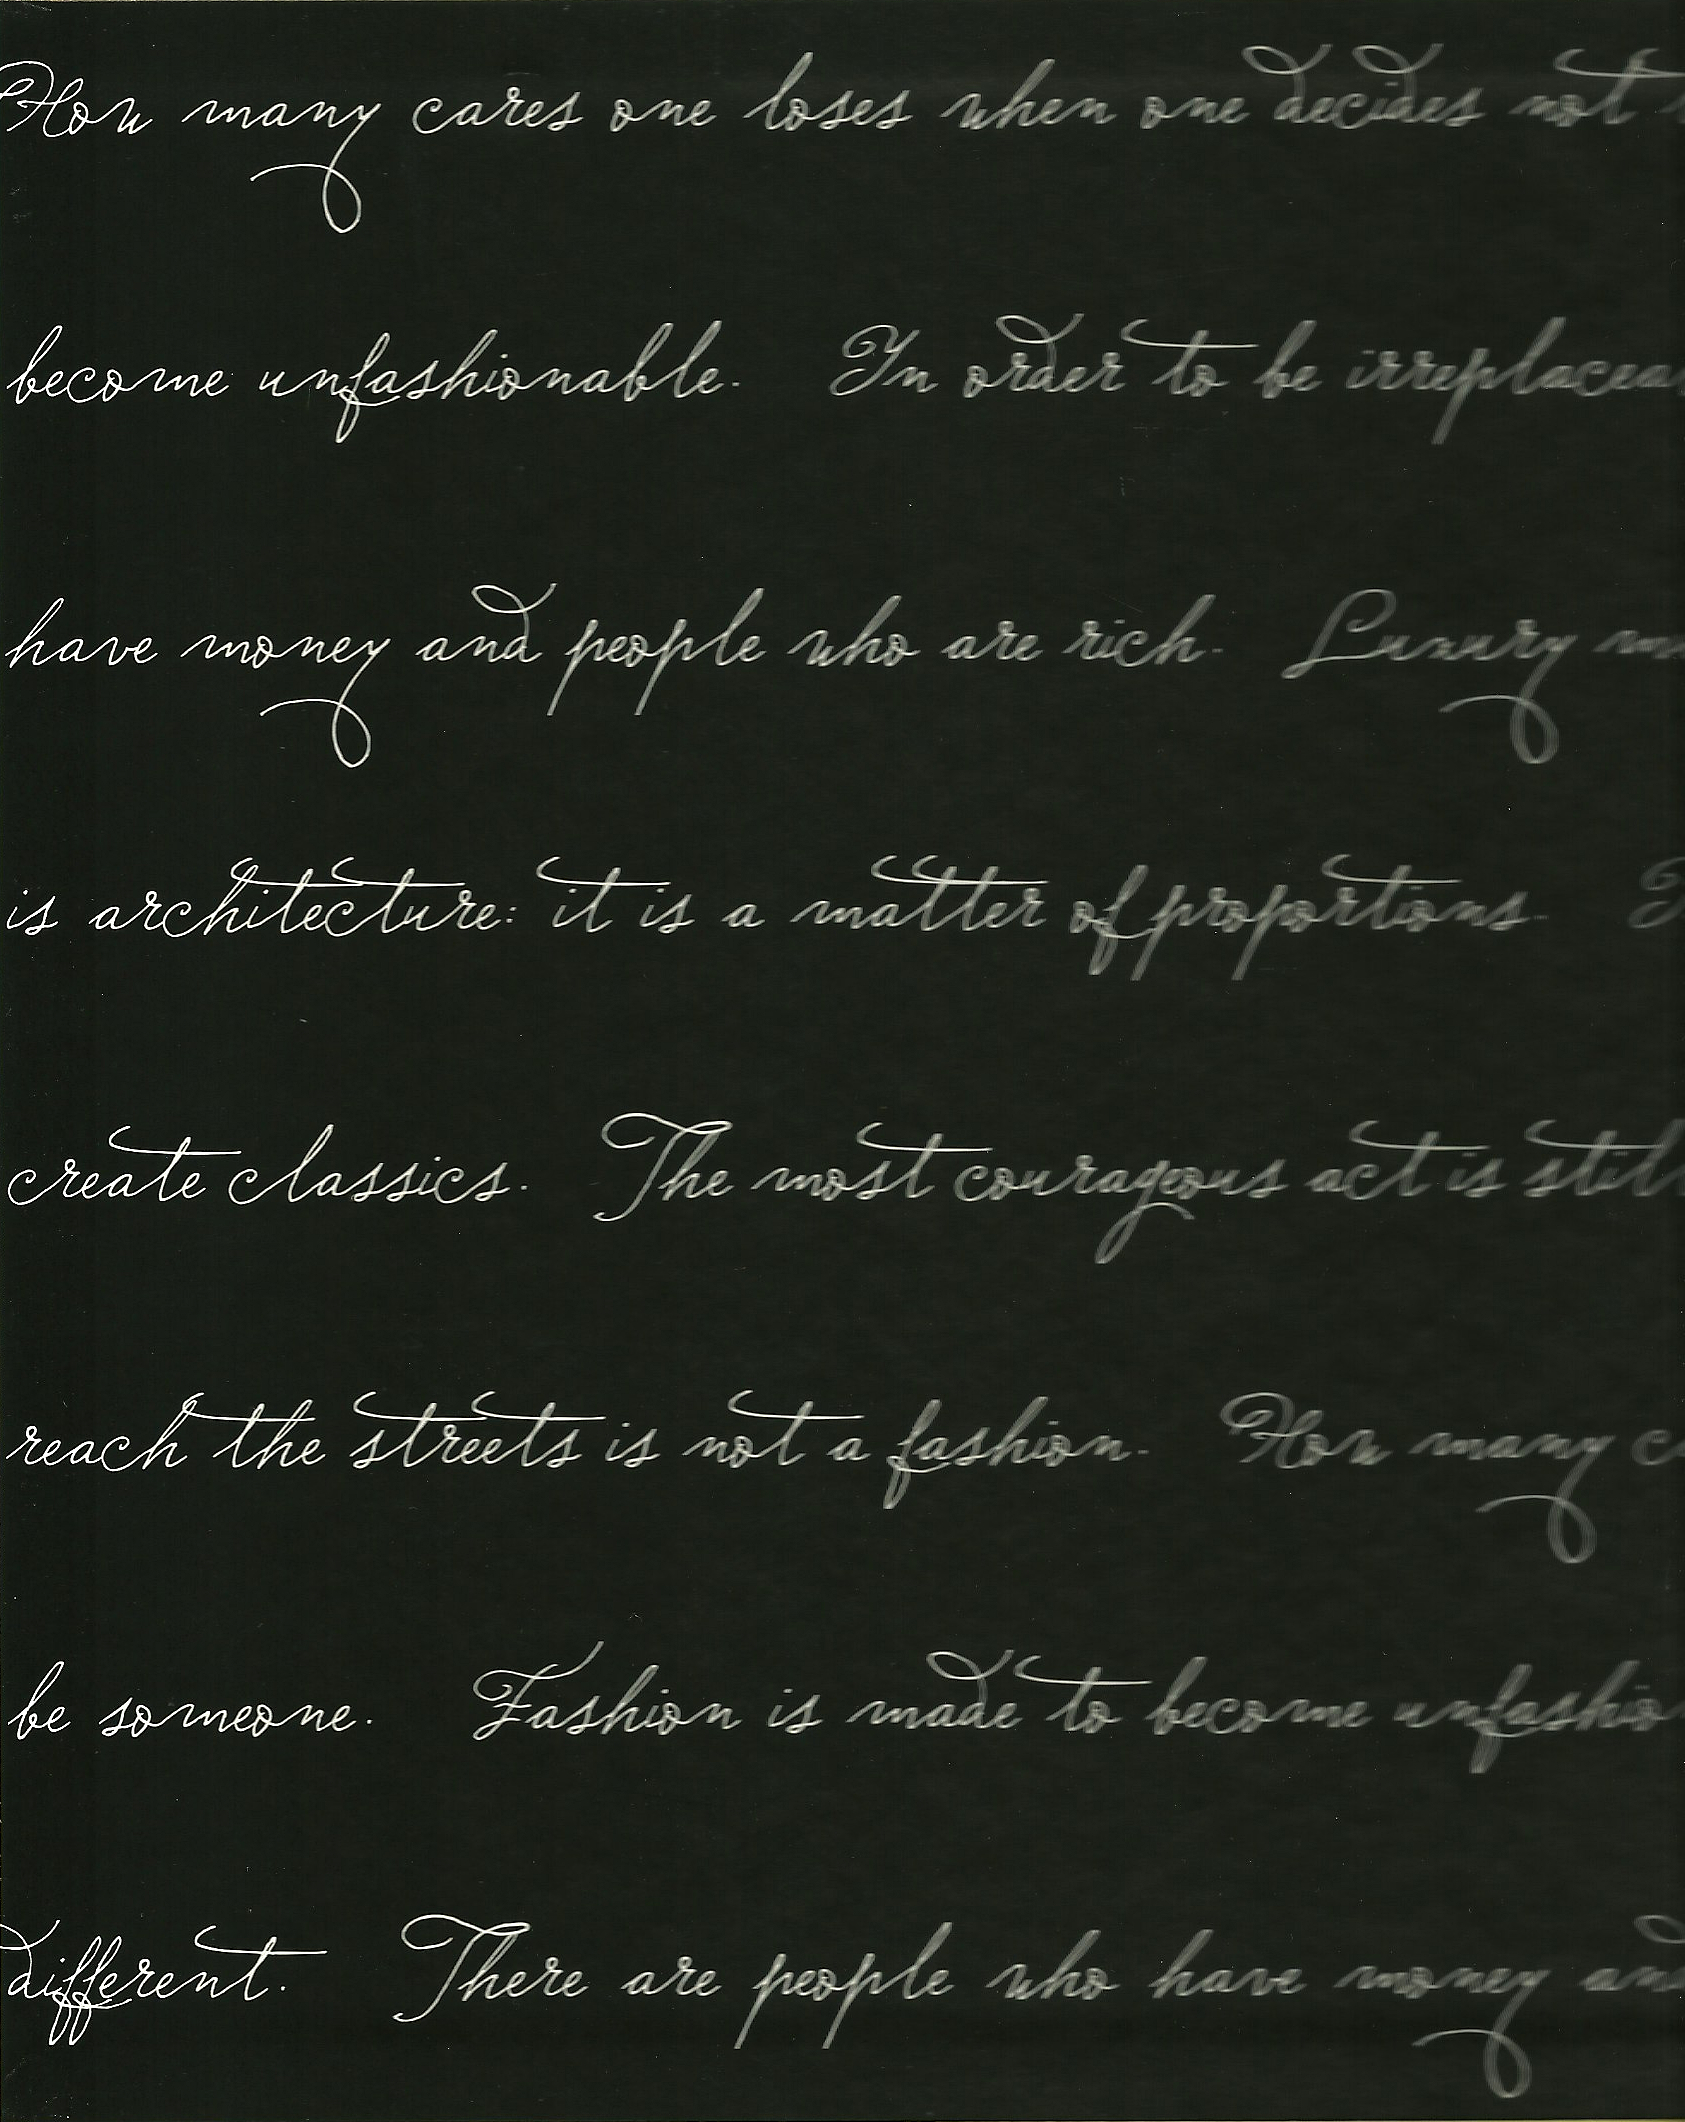 How many cares one loses when one decides not
become unfashionable. In order to be irreplacea
have money and people who are rich. Luxury
is architecture: it is a matter of proportions.
create classics. The most courageous act is still
reach the streets is not a fashion. How many
be someone. Fashion is made to become unfashio
different. There are people who have money and